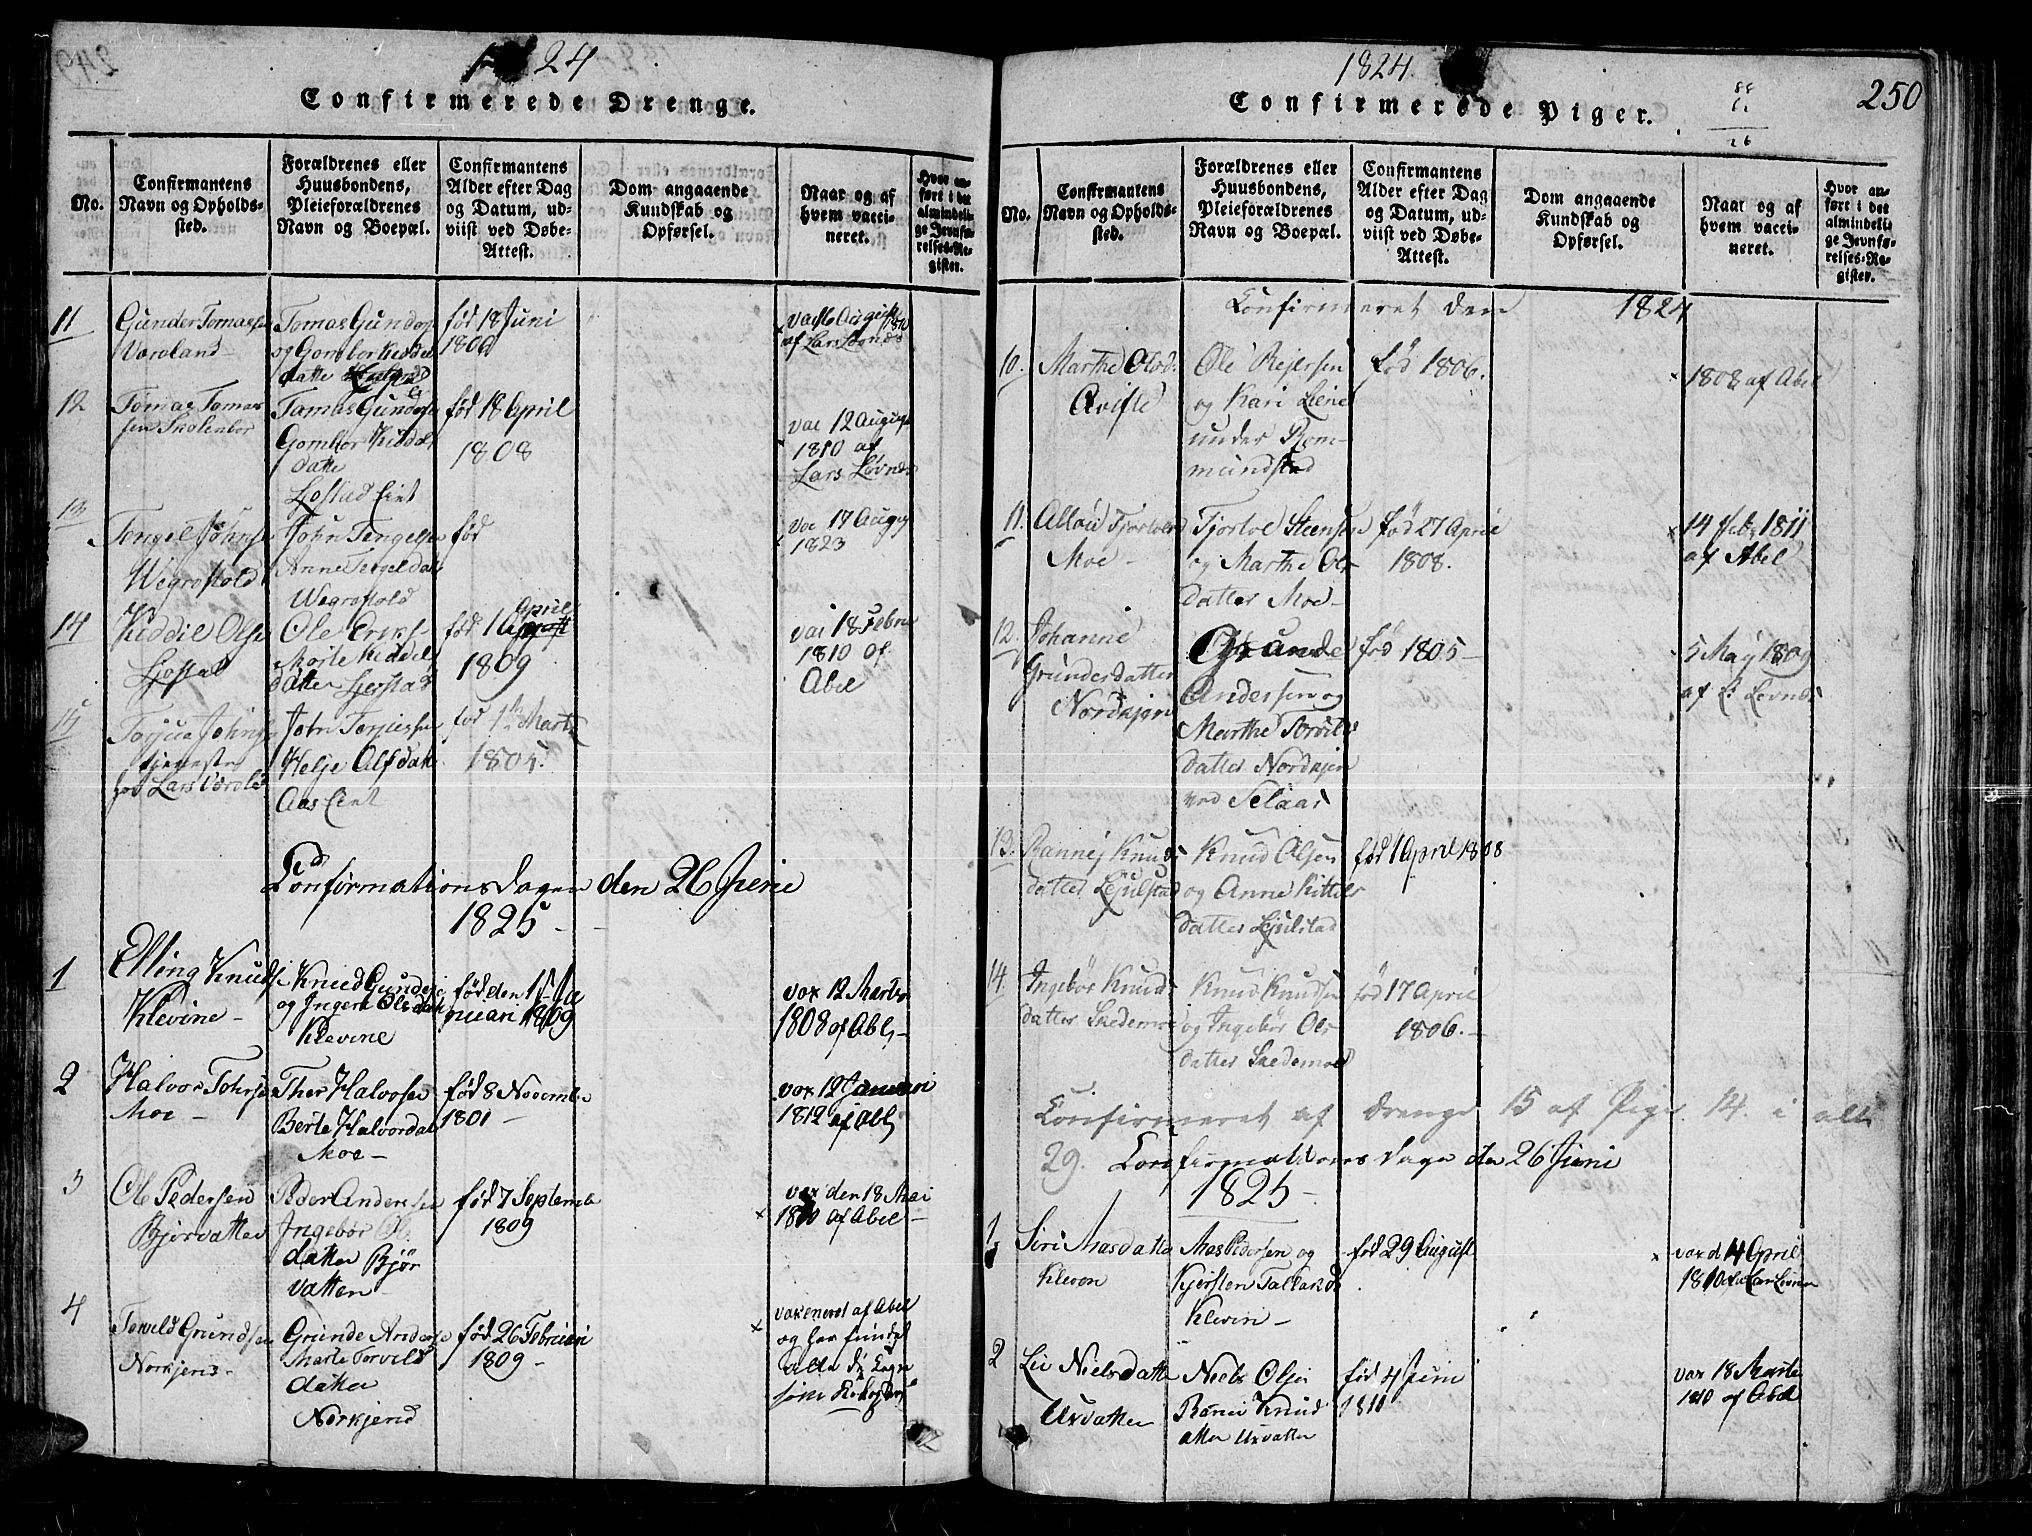 1824
Confirmerede Drenge.
No.
Confirmantens
Navn og Opholds-
sted.
Forældrenes eller
Huusbondens,
Pleieforældrenes
Navn og Boepæl.
Confirmantens
Alder efter Dag
og Datum, ud-
viist ved Døbe-
Attest.
Dom angaaende
Kundskab og
Opførsel.
Naar og af
hvem vacci-
neret.
Hvor an-
ført i det
almindeli-
ge Jevnfø-
relses-Re-
gister.
11
Gunder Tomassen
Væraland
Tomas Gunders
og Gombor Kiddels
datte
fød 18 Juni
1806
vac 16 August 1810
af Lars Løvnes
12
Tomas Tomas
sen Skolenbor
Tamas Gunders
Gombor Kiddels
datte
Ljostad Eint
fød 18 April
1808
vac 12 August
1810 af
Lars Løvnes
13
Tengel Johns
Wegrostold
John Tengelse
Anne Tergeldatt
Wegrostold
fød
vac 17 August
1823
14
Kiddil Olse
Ljostad
Ole Eriks-
Marte Kiddel
datter Ljostad
fød 1 April
1809
vac 18 Febru
1810 af
Abel
15
Torjus Johns
tjeneste
hos Lars Værole
John Torjussen
Helje Alfsdatt
Aas Eint
fød 1 Marts
1805.
Confirmationsdagen den 26 Juni
1825 -
1
Elling Knuds
Klevine -
Knud Gunders
og Ingere Olsdatt
Klevine
fød den 15 Ja
nuari 1809
vax 12 Marts
1808 af Abel -
2
Halvor Tohrs
Moe -
Ther Halvorsen
Berte Halvordat
Moe -
fød 8 Novembr
1801 -
vax 12 Januari
1812 af Abl
3
Ole Pedersen
Bjørvatten
Peder Andersen
Ingebor Ols
datter Bjør
vatten
fød 7 Septemb
1809
x
vax den 18 Mai
1810 af Abel -
4
Torvild Grundsen
Norkjens -
Grunde Anders
Marte Torvild
datter
Norkjend
fød 26 Februari
1809 -
x
vaxeneret af Abel
og har fundet
1824.
Confirmerede Piger.
26
250
No.
Confirmantens
Navn og Opholds-
sted.
Forældrenes eller
Huusbondens,
Pleieforældrenes
Navn og Boepæl.
Confirmantens
Alder efter Dag
og Datum, ud-
viist ved Døbe-
Attest.
Dom angaaende
Kundskab og
Opførsel.
Naar og af
hvem vacci-
neret.
Hvor an-
ført i det
almindeli-
ge Jevnfø-
relses-Re-
gister.
Confirmeret den 1824
10.
Marthe Olsd.
Ole Rejersen
og Kari Liene
under Rom-
mundstad
fød 1806.
1808 af Abel
11.
Moe -
Tjorloe Steensen
og Marthe Ols
datter Moe -
fød 27 April
1808.
x
14 Feb. 1811
af Abel
12.
Johanne
Grundersdatter
Nordkjen
Grunde
Andersen og
Marthe Torvils
datter Nordkjen
ved Selaas
fød 1805 -
5 May 1809
af L. Løvnes
13.
Rannej Knuds
datter Ljulstad
Knud Olsen
og Anne Kittels
datter Ljulstad
fød 1 April 1808
14.
Ingebør Knuds
datter Skedemoe
Knud Knudsen
og Ingebør Ols
datter Skedemoe
fød 17 April
1806. -
Confirmeret af Drenge 15 af Piger 14. i alt
29. Confirmations dagen den 26 Juni
1825 -
1
Siri Masdatter
Kleven
Mas Pedersen og
Kjersten Tallaksd
Klevin -
fød 29 August
x
vax d 4 April
1810 af Lars Løvnes
2
Liv Nielsdatter
Uxvatten
Niels Olsen
Ranei Knud
atter Uxvatten
fød 4 Juni
1810
vax 18 Marts
1810 af Abel